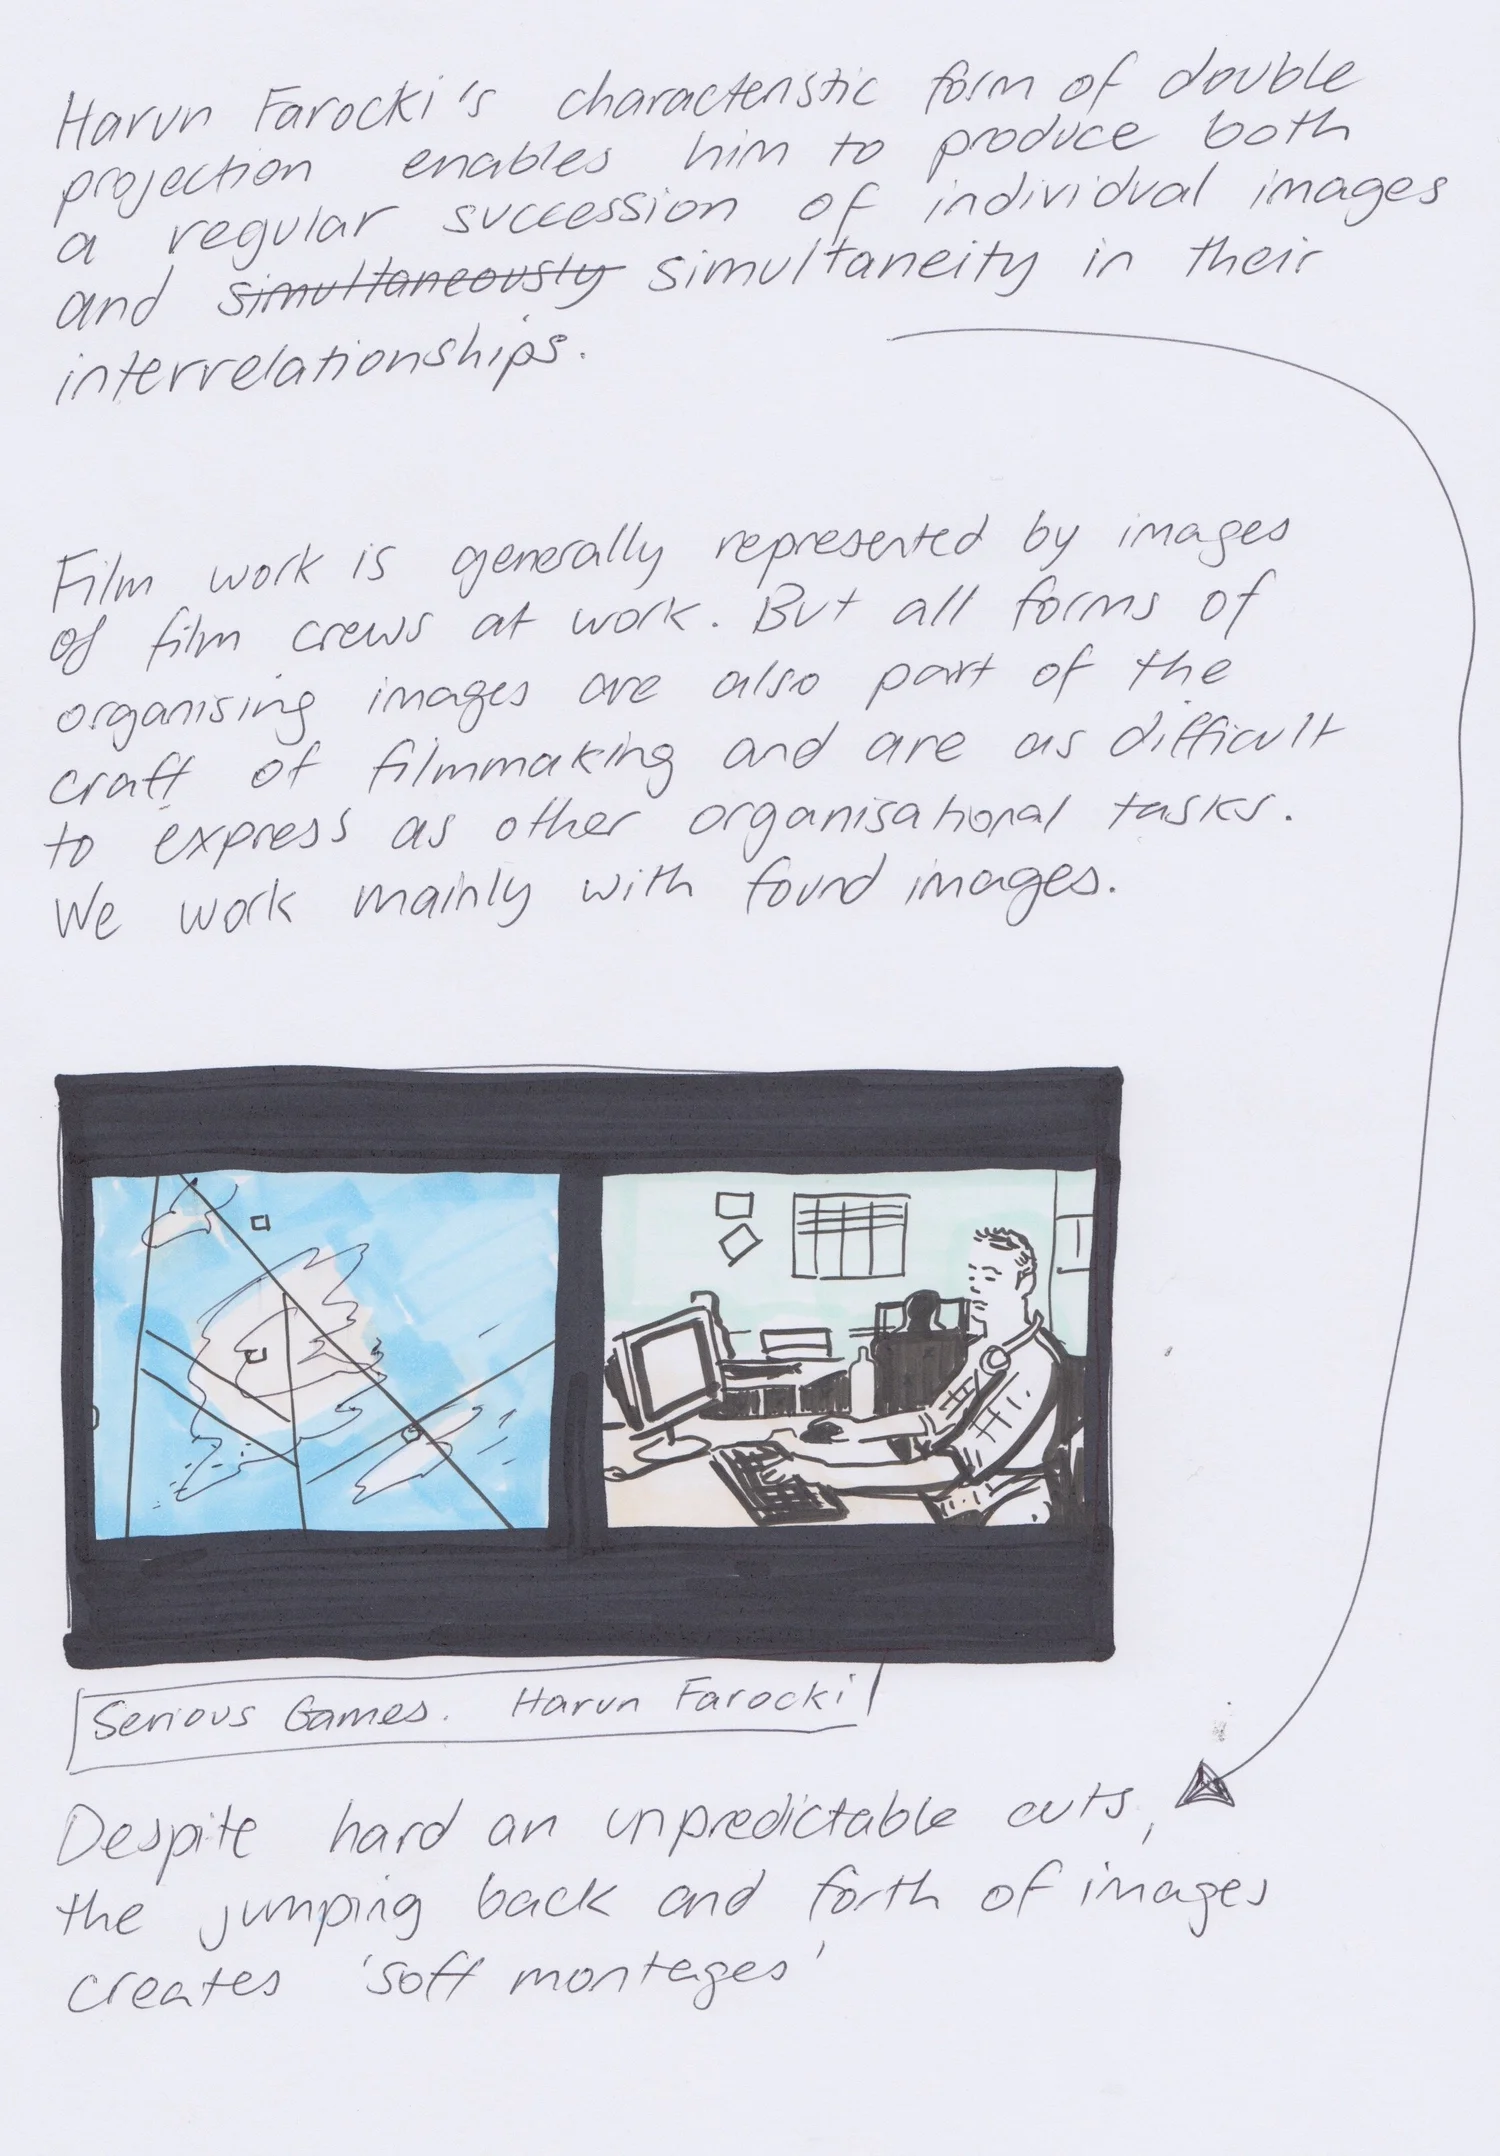 Harun Farocki's characteristic form of double
projection enables him to produce both
a regular succession of individual images
and simultaneously simultaneity in their
interrelationships.
Film work is generally represented by images
of film crews at work. But all forms of
organising images are also part of the
craft of filmmaking and are as difficult
to express as other organisational tasks.
We work mainly with found images.
Serious Games. Harun Farocki
Despite hard an unpredictable cuts,
the jumping back and forth of images
creates 'soft montages'